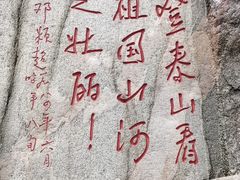 登泰山看
祖国山河
之壮丽！
邓颖超
八四年六月
时年八旬